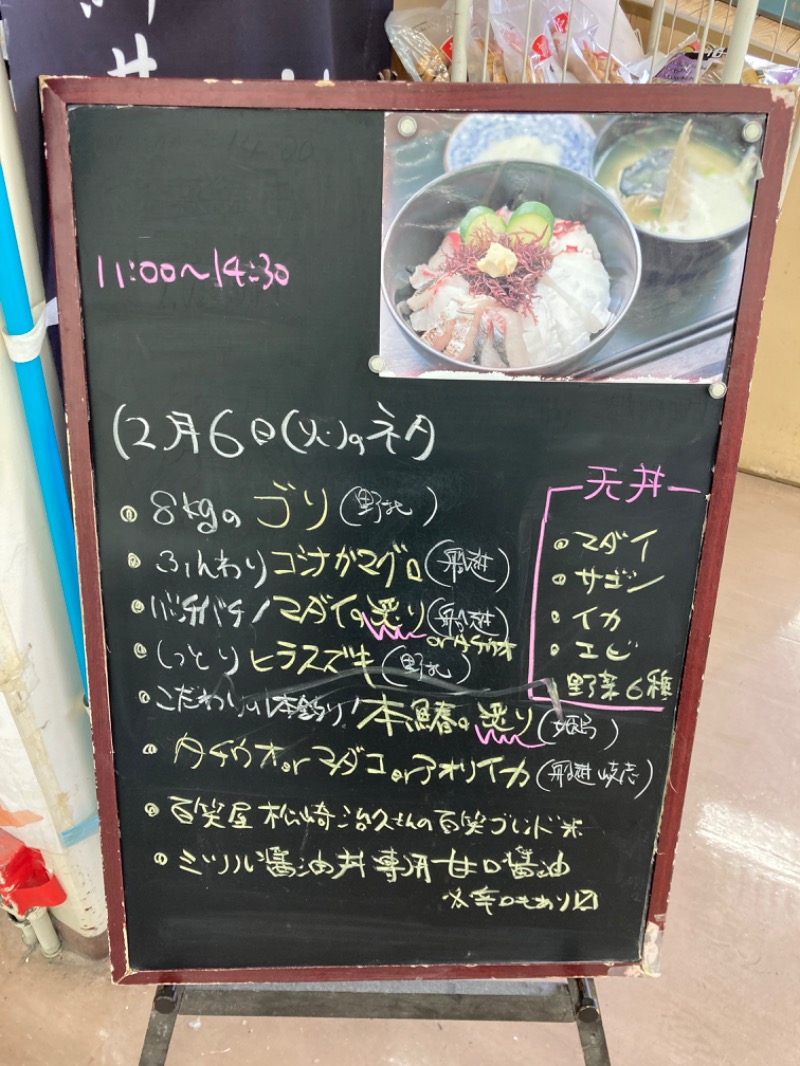 丼
11:00〜14:30
12月6日(火)のネタ
・8kgの ブリ(野北)
・ふんわり コナガマグロ(船越)
・バチバチ! マダイの炙り(船越)
orタチウオ
・しっとり ヒラスズキ(野北)
・こだわりの1本釣り! 本鰆の炙り(姫島)
・タチウオorマダコorアオリイカ(船越 岐志)
・百笑屋 松崎治久さんの百笑ブレンド米
・ミツル醤油丼専用甘口醤油
※辛口もあり〼
天丼
・マダイ
・サゴシ
・イカ
・エビ
野菜6種